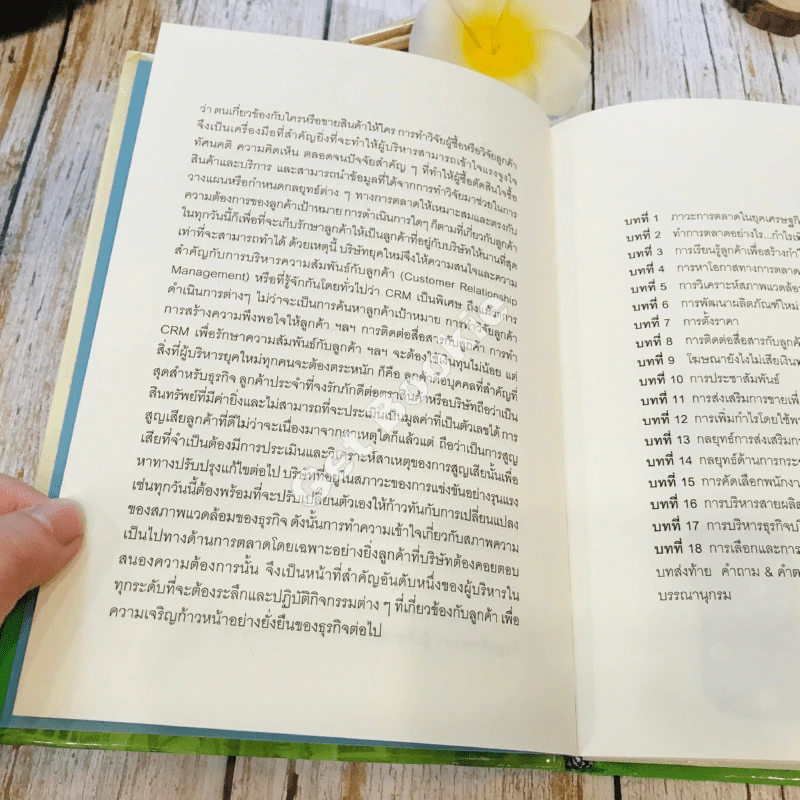 ว่า ตนเกี่ยวข้องกับใครหรือขายสินค้าให้ใคร การทำวิจัยผู้ซื้อหรือวิจัยลูกค้า
จึงเป็นเครื่องมือที่สำคัญยิ่งที่จะทำให้ผู้บริหารสามารถเข้าใจแรงจูงใจ
ทัศนคติ ความคิดเห็น ตลอดจนปัจจัยสำคัญ ๆ ที่ทำให้ผู้ซื้อตัดสินใจซื้อ
สินค้าและบริการ และสามารถนำข้อมูลที่ได้จากการทำวิจัยมาช่วยในการ
วางแผนหรือกำหนดกลยุทธ์ต่าง ๆ ทางการตลาดให้เหมาะสมและตรงกับ
ความต้องการของลูกค้าเป้าหมาย การดำเนินการใดๆ ก็ตามที่เกี่ยวกับลูกค้า
ในทุกวันนี้ก็เพื่อที่จะเก็บรักษาลูกค้าให้เป็นลูกค้าที่อยู่กับบริษัทให้นานที่สุด
เท่าที่จะสามารถทำได้ ด้วยเหตุนี้ บริษัทยุคใหม่จึงให้ความสนใจและความ
สำคัญกับการบริหารความสัมพันธ์กับลูกค้า (Customer Relationship
Management) หรือที่รู้จักกันโดยทั่วไปว่า CRM เป็นพิเศษ ถึงแม้ว่าการ
ดำเนินการต่างๆ ไม่ว่าจะเป็นการค้นหาลูกค้าเป้าหมาย การวิจัยลูกค้า
การสร้างความพึงพอใจให้ลูกค้า ฯลฯ การติดต่อสื่อสารกับลูกค้า การทำ
CRM เพื่อรักษาความสัมพันธ์กับลูกค้า ฯลฯ จะต้องใช้เงินทุนไม่น้อย แต่
สิ่งที่ผู้บริหารยุคใหม่ทุกคนจะต้องตระหนัก ก็คือ ลูกค้าคือบุคคลที่สำคัญที่
สุดสำหรับธุรกิจ ลูกค้าประจำที่จงรักภักดีต่อตราสินค้าหรือบริษัทถือว่าเป็น
สินทรัพย์ที่มีค่ายิ่งและไม่สามารถที่จะประเมินเป็นมูลค่าที่เป็นตัวเลขได้ การ
สูญเสียลูกค้าที่ดีไม่ว่าจะเนื่องมาจากสาเหตุใดก็แล้วแต่ ถือว่าเป็นการสูญ
เสียที่จำเป็นต้องมีการประเมินและวิเคราะห์สาเหตุของการสูญเสียนั้นเพื่อ
หาทางปรับปรุงแก้ไขต่อไป บริษัทที่อยู่ในสภาวะของการแข่งขันอย่างรุนแรง
เช่นทุกวันนี้ต้องพร้อมที่จะปรับเปลี่ยนตัวเองให้ก้าวทันกับการเปลี่ยนแปลง
ของสภาพแวดล้อมของธุรกิจ ดังนั้นการทำความเข้าใจเกี่ยวกับสภาพความ
เป็นไปทางด้านการตลาดโดยเฉพาะอย่างยิ่งลูกค้าที่บริษัทต้องคอยตอบ
สนองความต้องการนั้น จึงเป็นหน้าที่สำคัญอันดับหนึ่งของผู้บริหารใน
ทุกระดับที่จะต้องระลึกและปฏิบัติกิจกรรมต่าง ๆ ที่เกี่ยวข้องกับลูกค้า เพื่อ
ความเจริญก้าวหน้าอย่างยั่งยืนของธุรกิจต่อไป
Get Bookie
บทที่ 1 ภาวะการตลาดในยุคเศรษฐกิ
บทที่ 2 ทำการตลาดอย่างไร...กำไรเพิ่
บทที่ 3 การเรียนรู้ลูกค้าเพื่อสร้างกำไ
บทที่ 4 การหาโอกาสทางการตลาด
บทที่ 5 การวิเคราะห์สภาพแวดล้อ
บทที่ 6 การพัฒนาผลิตภัณฑ์ใหม่
บทที่ 7 การตั้งราคา
บทที่ 8 การติดต่อสื่อสารกับลูกค้
บทที่ 9 โฆษณายังไงไม่เสียเงินฟ
บทที่ 10 การประชาสัมพันธ์
บทที่ 11 การส่งเสริมการขายเพื่
บทที่ 12 การเพิ่มกำไรโดยใช้พ
บทที่ 13 กลยุทธ์การส่งเสริมก
บทที่ 14 กลยุทธ์ด้านการกระจ
บทที่ 15 การคัดเลือกพนักงา
บทที่ 16 การบริหารสายผลิต
บทที่ 17 การบริหารธุรกิจบ
บทที่ 18 การเลือกและการ
บทส่งท้าย คำถาม & คำต
บรรณานุกรม